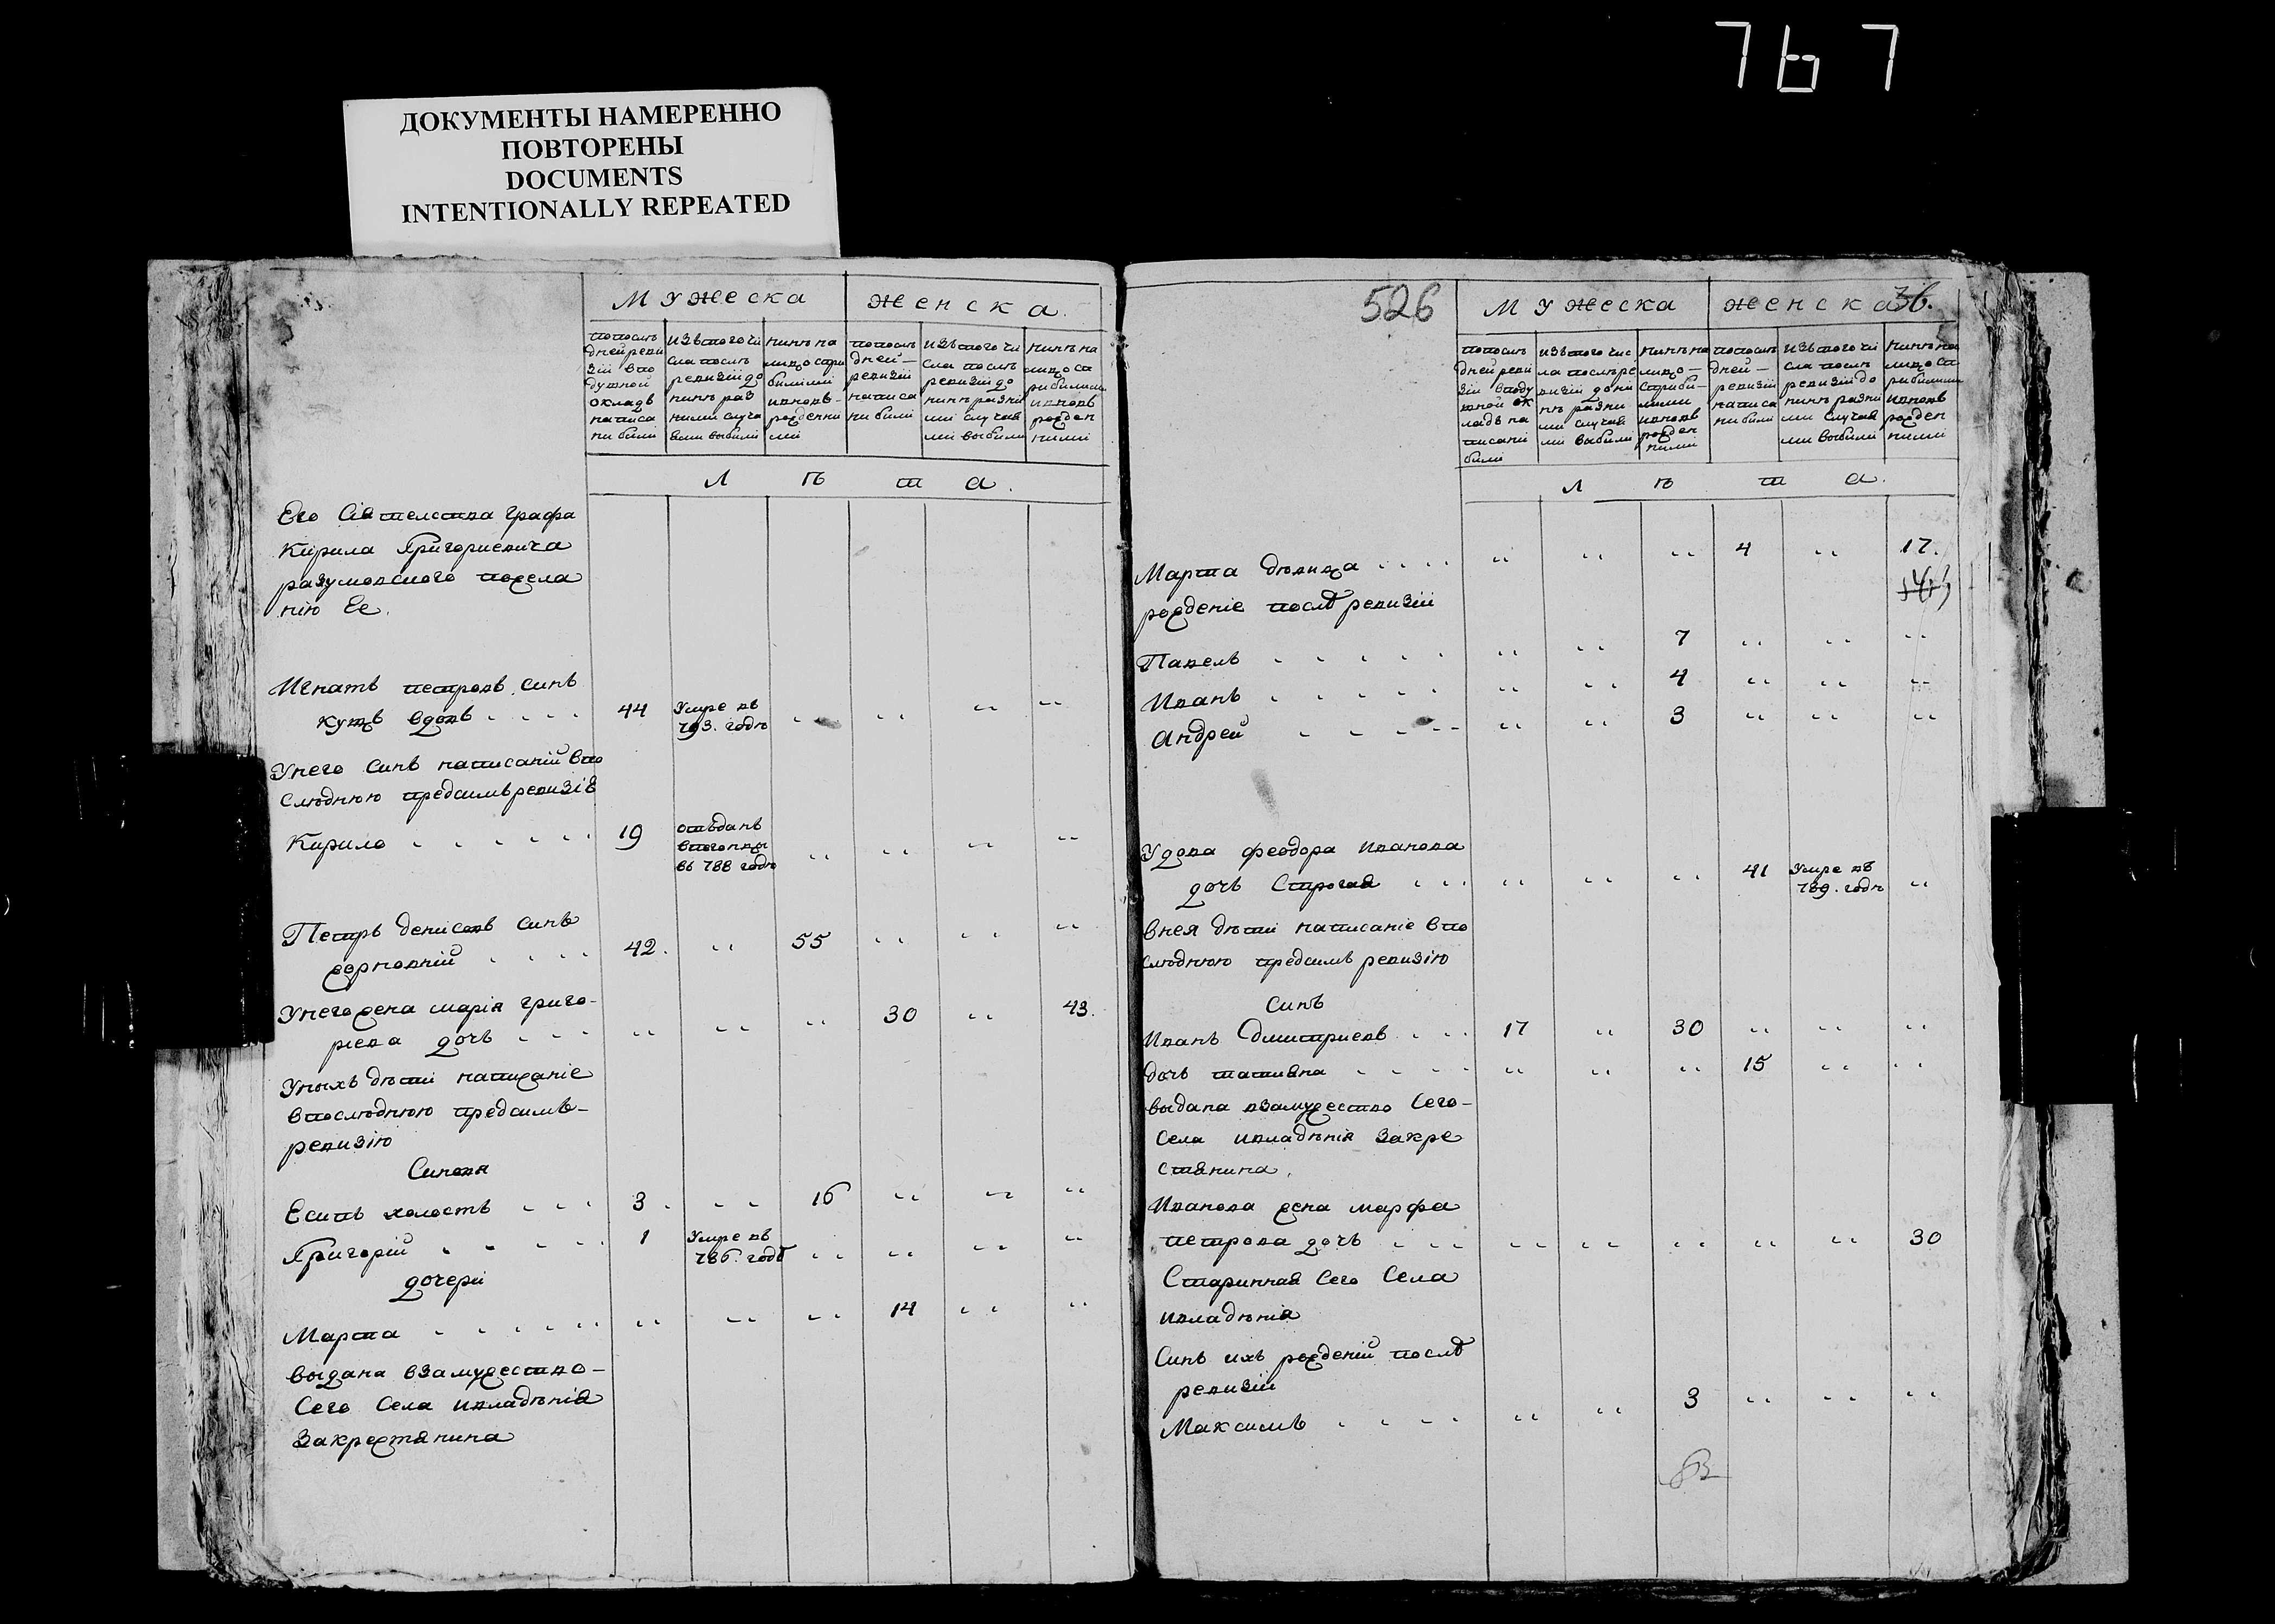 767
ДОКУМЕНТЫ НАМЕРЕННО
ПОВТОРЕНЫ
DOCUMENTS
INTENTIONALLY REPEATED
Мужеска женска.
попослѣ дней реви зіи впо душной окладъ написа ни были
изъ того чи сла послѣ ревизіи до нинѣ раз ними случа ями выбили
нинѣ на лицо спри билими ивновь рожденни ми
попослѣ дней ревизіи написа ни били
изъ того чи сла послѣ ревизіи до нинѣ разни ми случая ми выбили
нинѣ на лицо сп рибилими ивновь рожден ними
Лѣта.
Его Сіятелства графа
Кирила Григориевича
разумовского
нію Ее.
Игнатъ петровъ синъ
куцъ вдовъ 44 Умре въ 793. годѣ
Унего синъ написаній впо
слюднюю предсимъ ревизіѣ
Кирило 19 отъданъ въ 788 годѣ
Петръ денисовъ синъ
жорновній 42. 55
Унего жена марія григо-
риева дочь 30 43.
Унихъ дѣти написаніе
впослюднюю предсимъ-
ревизію
Синовя
Есипъ холостъ 3. 16
Григорій 1 Умре въ 786. годѣ
дочери
Марта 14
выдана взамужество-
Сего Села ивладѣнія
Закрестянина
526
Мужеска женска 36.
попослѣ дней реви зіи вподу шной ок ладъ на писани били
изъ того чис ла послѣ ре визіи до ни нѣ разни ми случая ми выбили
нинѣ на лицо- сприби- лими ивновъ рожден ними
попослѣ дней- ревизіи написа ни били
изъ того чи сла послѣ ревизіи до нинѣ разни ми случая ми выбили
нинѣ на лицо сп рибилими ивновъ рожден ними
Лѣта.
Марта дювица 4 17.
рожденіе послѣ ревизіи
Павелъ 7
Иванъ 4
Андрей 3
Удова феодора Иванова
дочъ Строгая 41 Умре въ 789. годѣ
Внея дѣти написаніе впо
слюднюю предсимъ ревизію
Синъ
Иванъ Дмитриевъ 17 30
дочъ татияна 15
выдана взамужество Сего-
Села ивладѣнія Закре
стянина.
Иванова жена марфа
петрова дочъ 30
Старинная Сего Села
ивладѣнія
Синъ ихъ рожденій послѣ
ревизіи
Максимъ 3